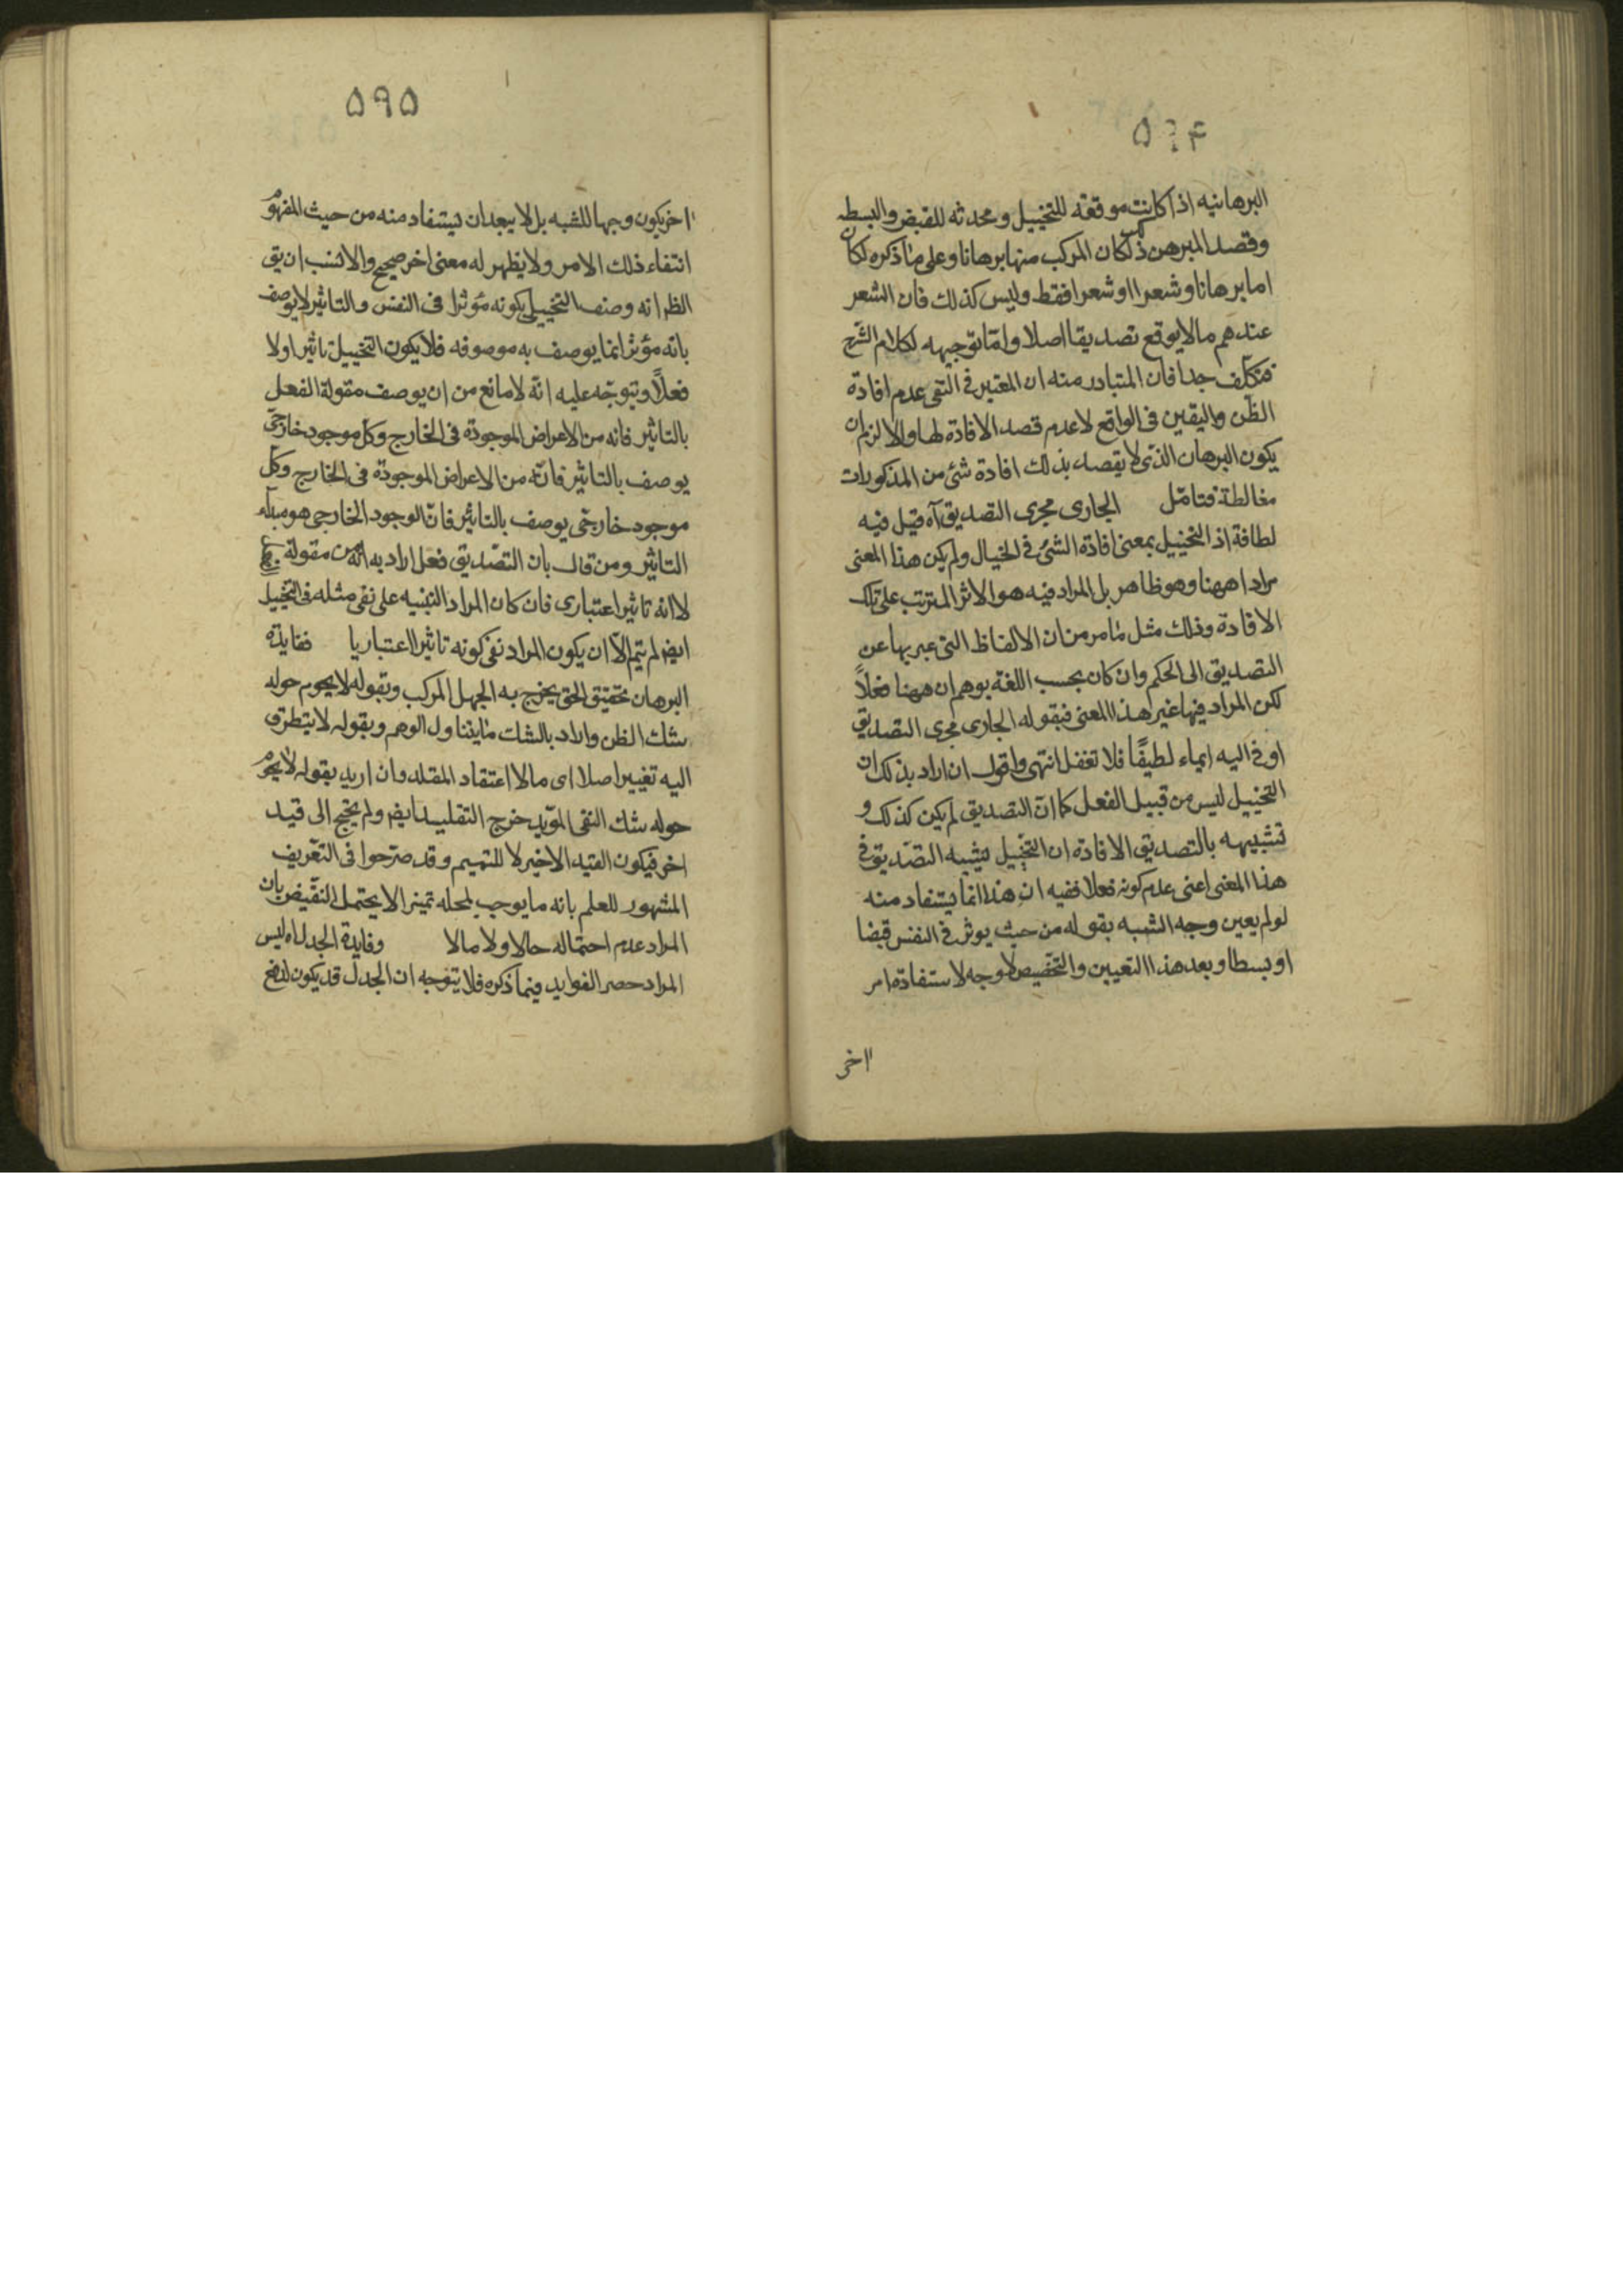 ۵۹۴
البرهانيه اذا كانت موقعة للتخييل ومحدثه للقبض والبسط
وقصد المبرهن ذلك كان المركب منها برهانا وعلى ما ذكره لكان
اما برهانا وشعرا او شعرا فقط وليس كذلك فان الشعر
عندهم مالا يوقع تصديقا اصلا واما توجيهه لكلام الشرح
فتكلف جدا فان المتبادر منه ان المعتبر فى النفى عدم افادة
الظن واليقين فى الواقع لا عدم قصد الافادة لها والا لزم ان
يكون البرهان الذى لا يقصد بذلك افادة شئ من المذكورات
مغالطة فتامل الجارى مجرى التصديق آه قيل فيه
لطافة اذ التخييل بمعنى افادة الشئ فى الخيال ولم يكن هذا المعنى
مرادا ههنا وهو ظاهر بل المراد فيه هو الاثر المترتب على تلك
الافادة وذلك مثل ما مر من ان الالفاظ التى عبر بها عن
التصديق الى الحكم وان كان بحسب اللغة يوهم ان ههنا فعلاً
لكن المراد فيها غير هذا المعنى فبقوله الجارى مجرى التصديق
اوفى اليه ايماء لطيفًا فلا تغفل انتهى واقول ان اراد بذلك ان
التخييل ليس من قبيل الفعل كما ان التصديق لم يكن كذلك و
تشبيهه بالتصديق الافادة ان التخييل يشبه التصديق فى
هذا المعنى اعنى عدم كونه فعلا ففيه ان هذا انما يستفاد منه
لو لم يعين وجه الشبه بقوله من حيث يوثر فى النفس قبضا
او بسطا وبعد هذا التعيين والتخصيص لا وجه لاستفادة امر
اخر
۵۹۵
اخر يكون وجها للشبه بل لا يبعد ان يستفاد منه من حيث المفهوم
انتفاء ذلك الامر ولا يظهر له معنى اخر صحيح والانسب ان يق
الظر انه وصف التخييل بكونه مؤثرا فى النفس والتاثير لا يوصف
بانه مؤثر انما يوصف به موصوفه فلا يكون التخييل تاثيرا ولا
فعلاً ويتوجه عليه انه لا مانع من ان يوصف مقولة الفعل
بالتاثير فانه من الاعراض الموجودة فى الخارج وكل موجود خارجى
يوصف بالتاثير فانه من الاعراض الموجودة فى الخارج وكل
موجود خارجى يوصف بالتاثير فان الوجود الخارجى هو مبدأ
التاثير ومن قال بان التصديق فعل اراد به انه من مقولة
لا انه تاثير اعتبارى فان كان المراد التنبيه على نفى مثله فى التخييل
ايضا لم يتم الا ان يكون المراد نفى كونه تاثيرا اعتباريا ففايدة
البرهان تحقيق الحق يخرج به الجهل المركب وبقوله لا يحوم حوله
شك الظن واراد بالشك ما يتناول الوهم وبقوله لا يتطرق
اليه تغيير اصلا اى مالا اعتقاد المقلد وان اريد بقوله لا يحوم
حوله شك النفى المؤبد خرج التقليد ايضا ولم يحتج الى قيد
اخر فيكون القيد الاخير لا للتتميم وقد صرحوا فى التعريف
المشهور للعلم بانه ما يوجب لمحله تميزا لا يحتمل النقيض بان
المراد عدم احتماله حالا ولا مالا وفايدة الجدل اه ليس
المراد حصر الفوايد فيما ذكره فلا يتوجه ان الجدل قد يكون لدفع